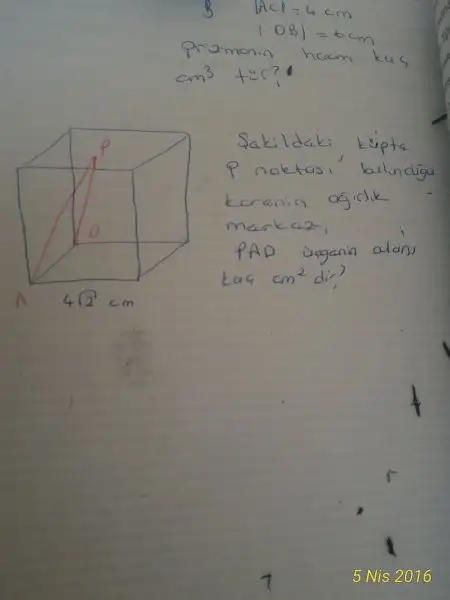 B |AC| = 4 cm
|OB| = 6 cm
prizmanın hacmi kaç
cm³ tür?
Şekildeki küpte
P noktası, bulunduğu
karenin ağırlık
merkezi,
PAD üçgenin alanı
kaç cm² dir?
P
D
A 4√2 cm
5 Nis 2016